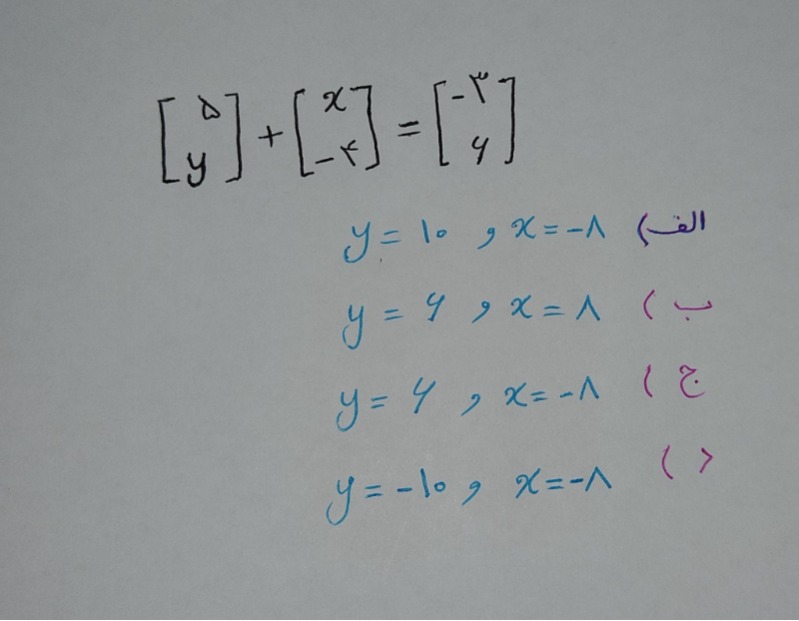 [۵ y] + [x -۴] = [-۳ ۶]
الف) x=-۸ و y=۱۰
ب) x=۸ و y=۶
ج) x=-۸ و y=۶
د) x=-۸ و y=-۱۰